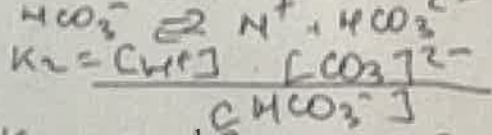 HCO3- ⇌ H+ + HCO3 2-
K2 = [H+] · [CO3]2-
[HCO3-]